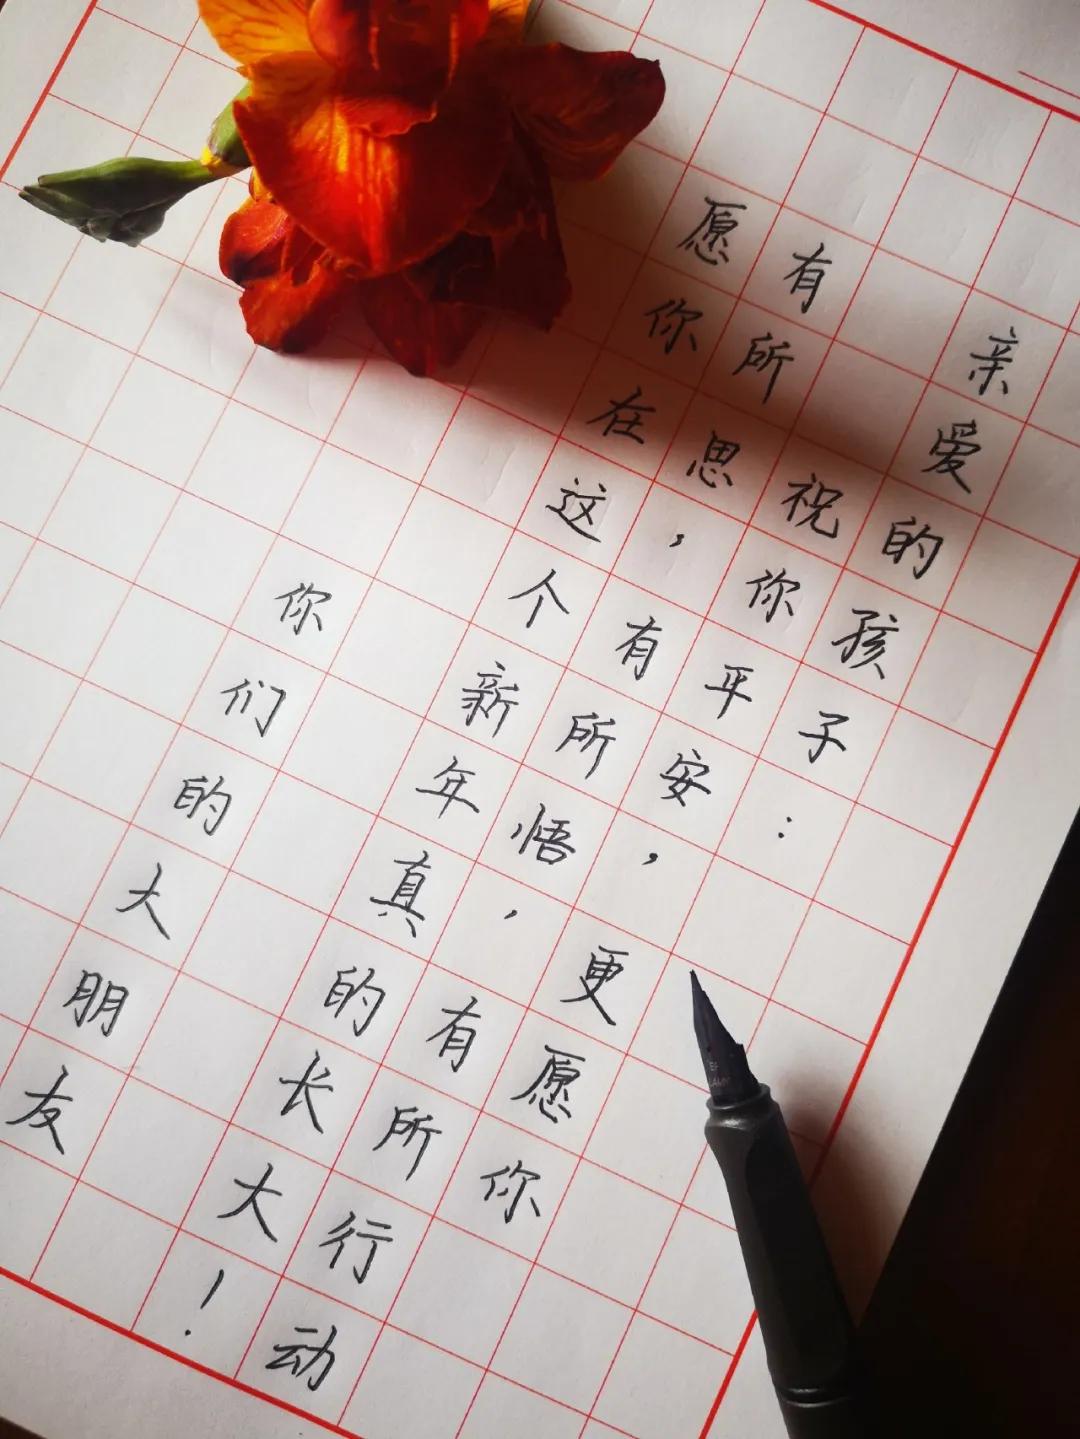 亲爱的孩子：
祝你平安，更愿你
有所思，有所悟，有所行动
愿你在这个新年真的长大！
你们的大朋友
EF
LAMY